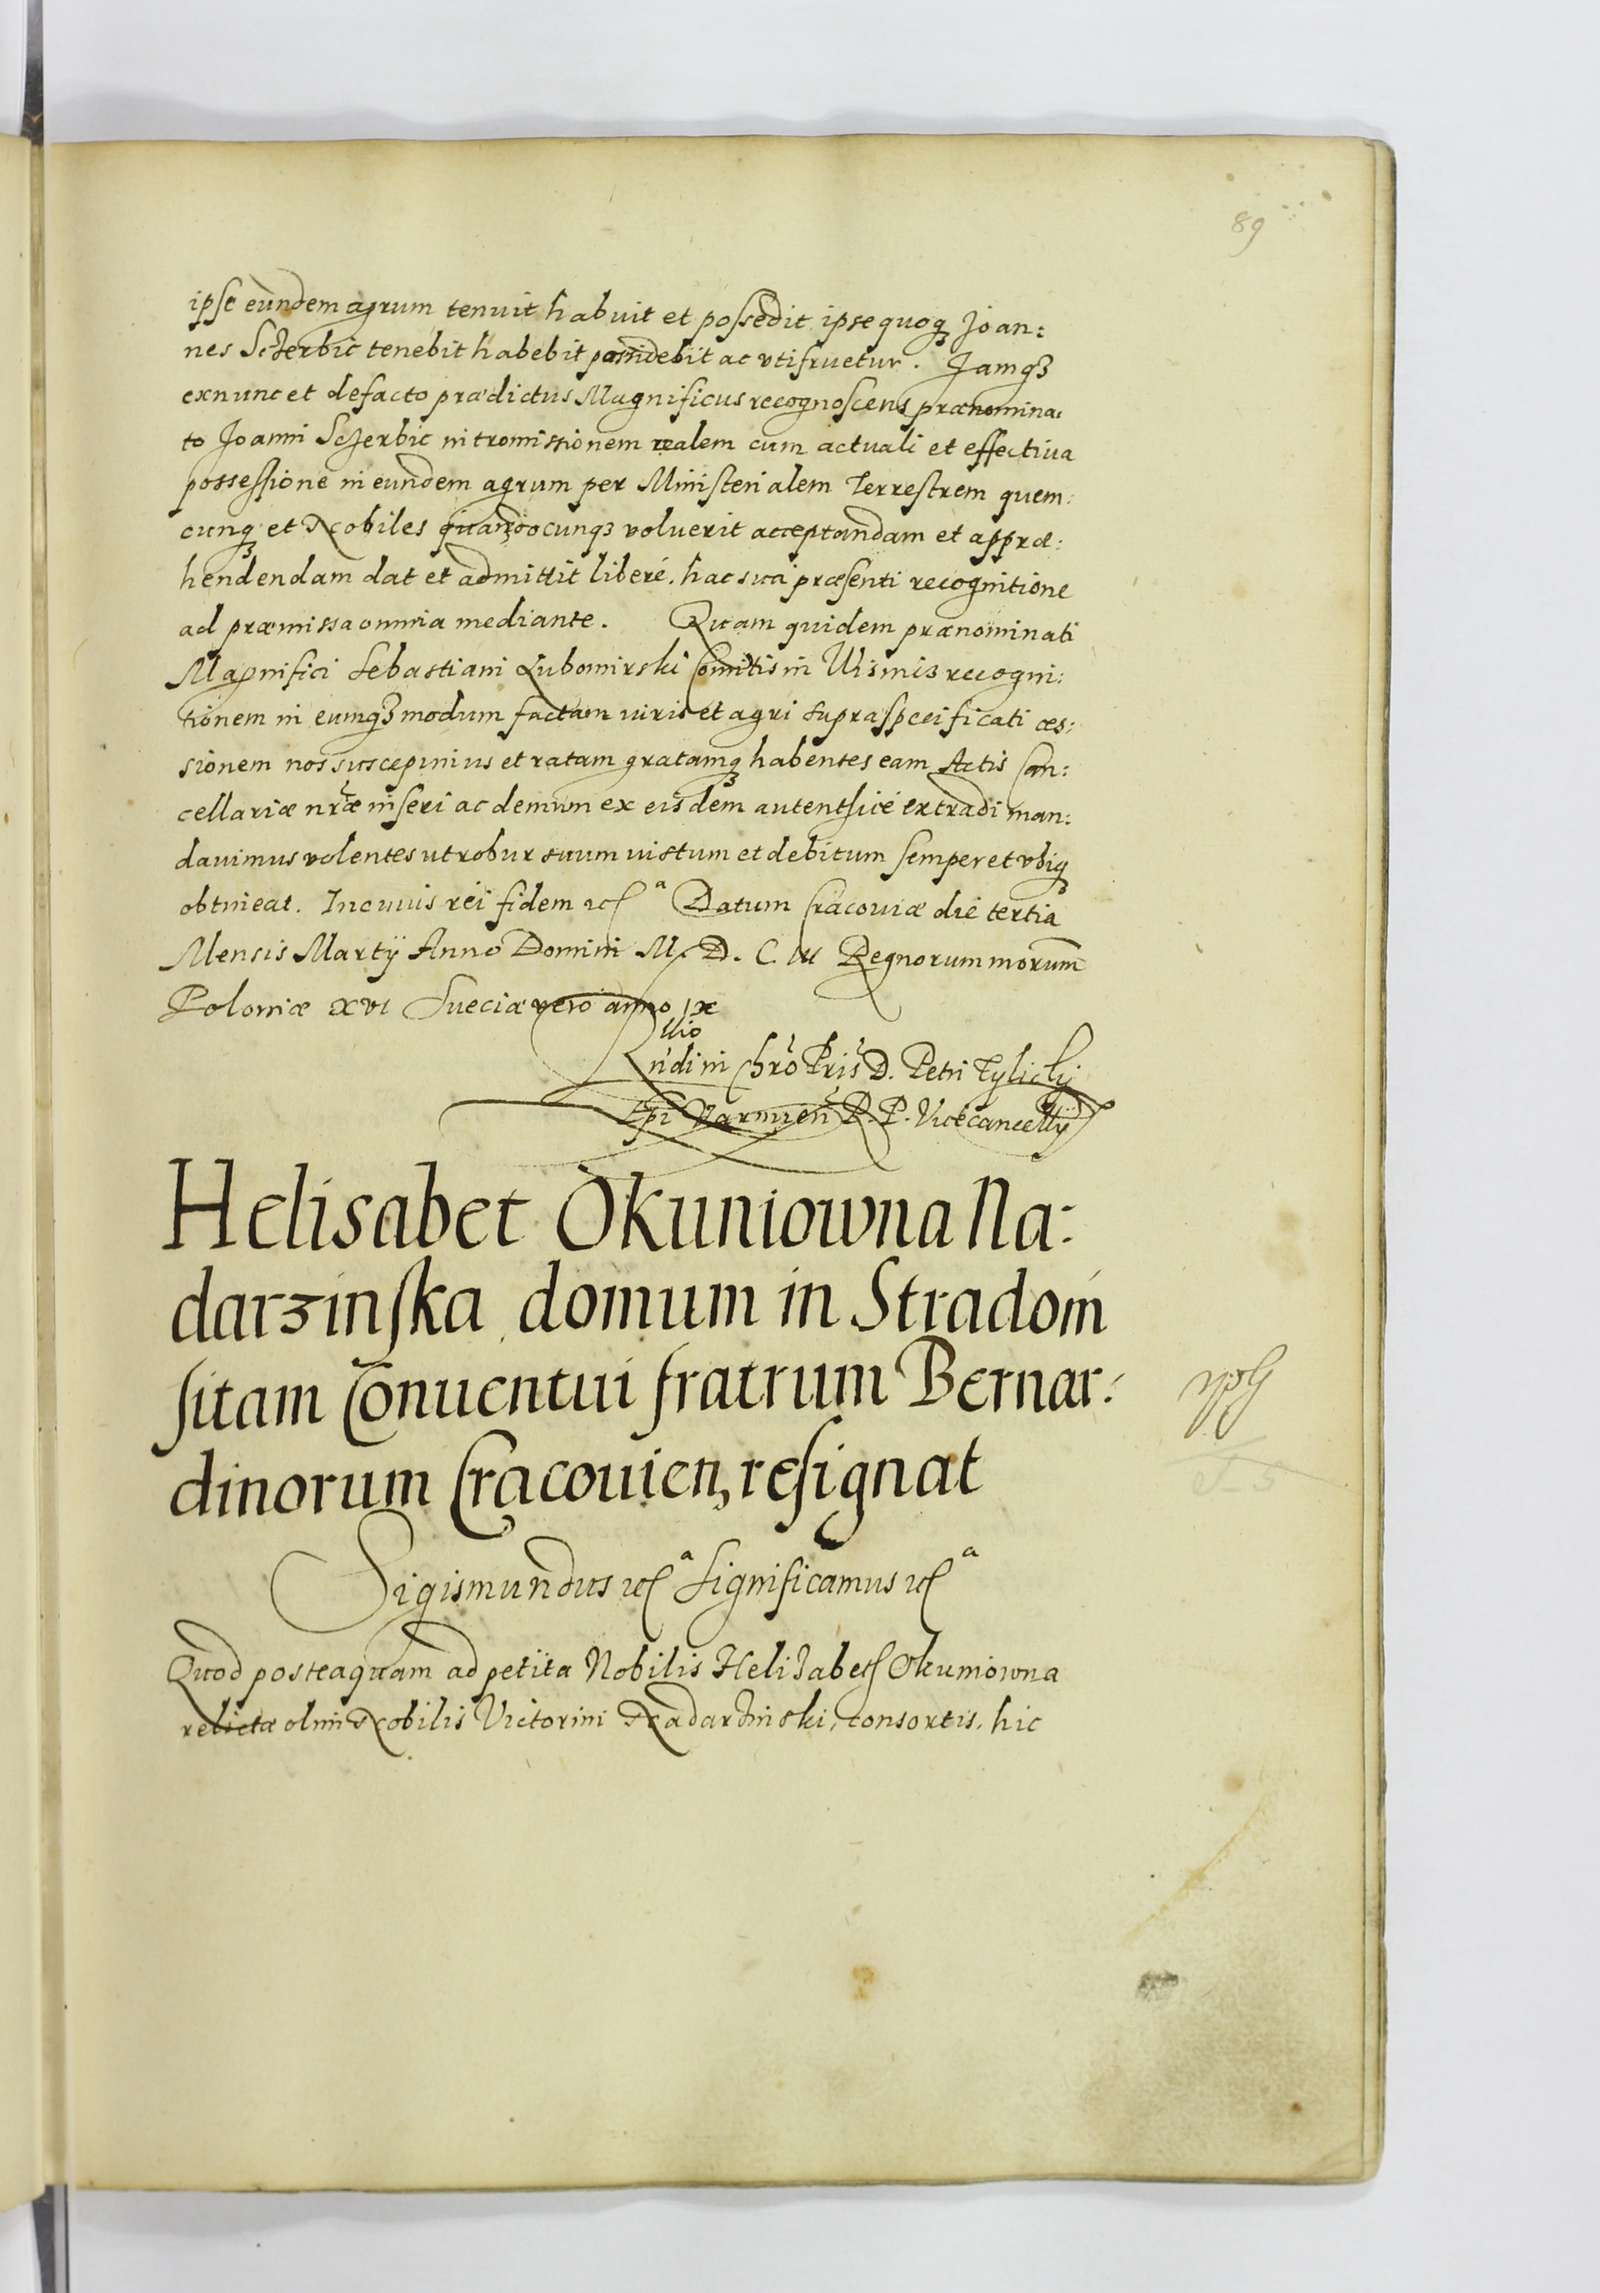 89
ipse eundem agrum tenuit habuit et possedit ipse quoqꝫ Joan:
nes Sczerbic tenebit habebit possidebit ac vtifruetur. Jamqꝫ
exnunc et defacto prædictus Magnificus recognoscens prænomina:
to Joanni Sczerbic intromissionem realem cum actuali et effectiua
possessione in eundem agrum per Ministerialem Terrestrem quem:
cunqꝫ et Nobiles quandocunqꝫ voluerit acceptandam et appræ:
hendendam dat et admittit liberé. hac sua præsenti recognitione
ad præmissa omnia mediante. Quam quidem prænominati
Magnifici Sebastiani Lubomirski Comitis in Wisnicz recogni:
tionem in eumqꝫ modum factam iuris et agri supraspecificati ces:
sionem nos suscepimus et ratam gratamqꝫ habentes eam Actis Can:
cellariæ nræ inseri ac demum ex eisdem autenthicé extradi man:
dauimus volentes ut robur suum iustum et debitum semper et vbiqꝫ
obtineat. In cuius rei fidem etc̃ᵃ Datum Cracouiæ die tertia
Mensis Martÿ Anno Domini M. D. C. III Regnorum nrorum
Poloniæ XVI Sueciæ vero anno IX
Rllio
ndi in Chro Pris D. Petri Tylicky
Epi Varmien R. P. Vicecancellÿ
Helisabet Okuniowna Na:
darzinska domum in Stradom
sitam Conuentui fratrum Bernar:
dinorum Cracouien, resignat
Sigismundus etc̃ᵃ Significamus etc̃ᵃ
Quod posteaquam ad petita Nobilis Helizabeth Okuniowna
relictæ olim Nobilis Victorini Nadarzinski, consortis, hic